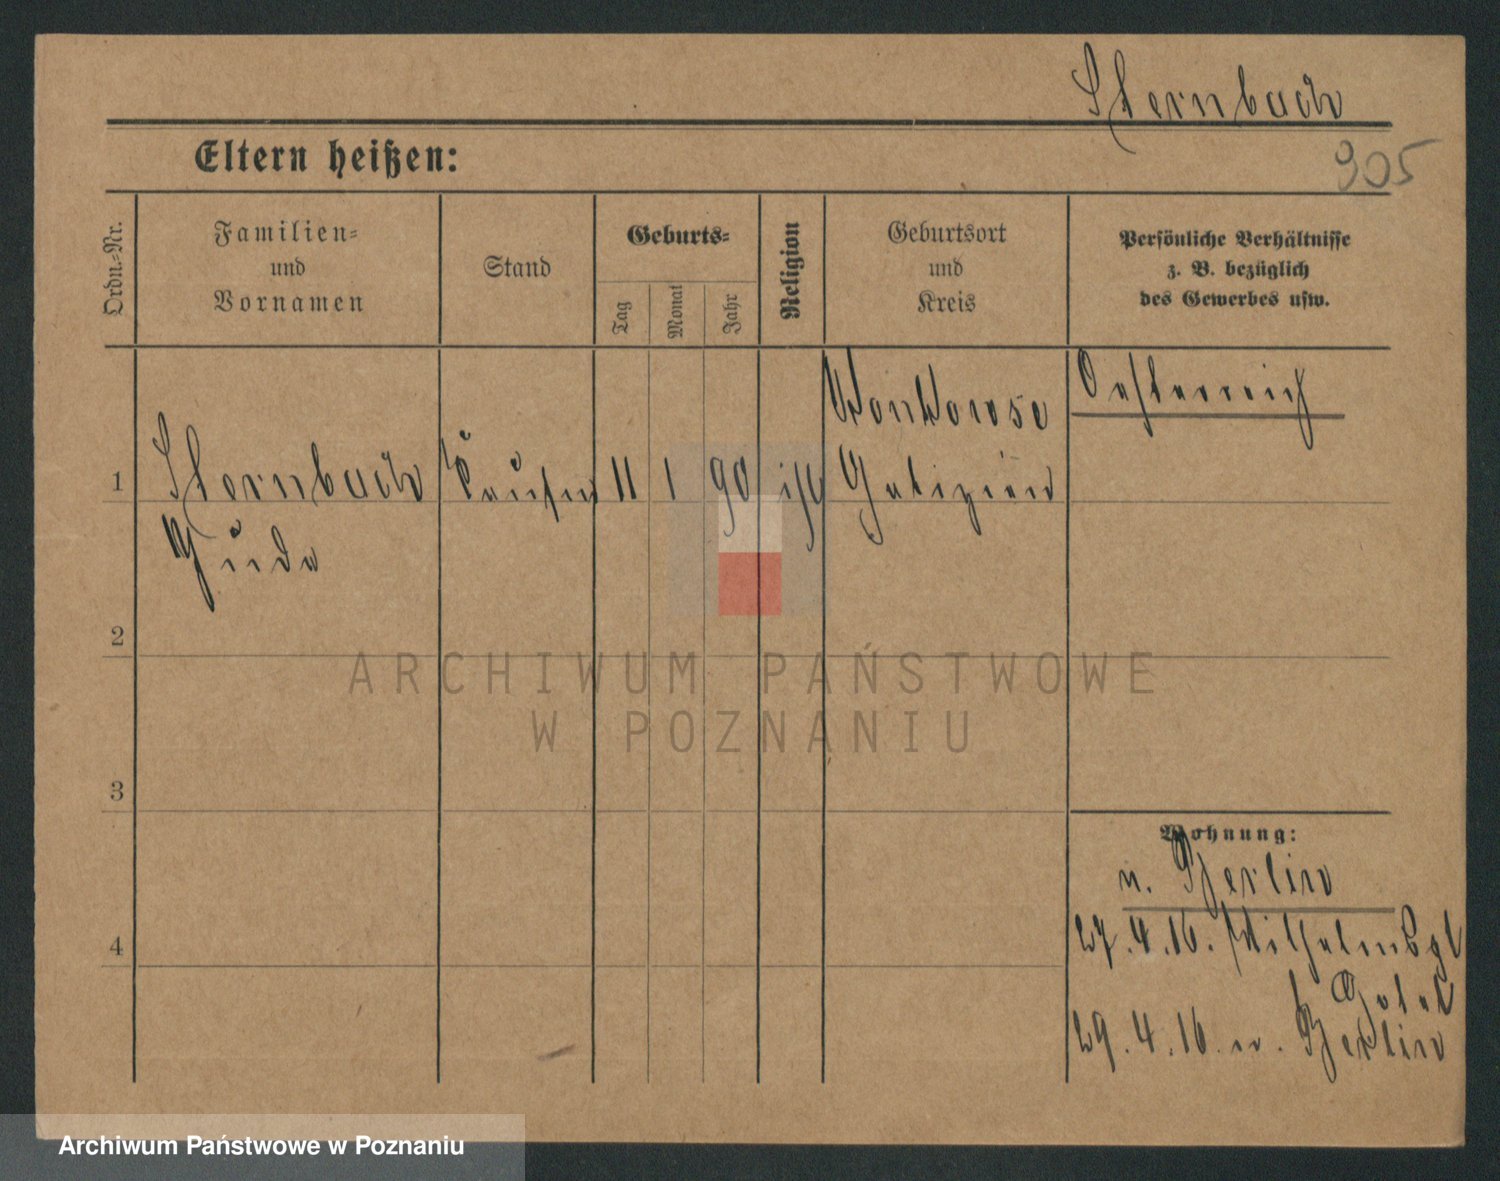 Sternbach
905
Eltern heißen:
Ordn.-Nr.
Familien-
und
Vornamen
Stand
Geburts-
Tag
Monat
Jahr
Religion
Geburtsort
und
Kreis
Persönliche Verhältnisse
z. B. bezüglich
des Gewerbes usw.
Oesterreich
1
Sternbach
Kaufm
11
1
90
isr
Galizien
Juda
2
3
4
Wohnung:
n. Berlin
27.4.16. Wilhelms
29.4.16 n. Berlin
ARCHIWUM PAŃSTWOWE
W POZNANIU
Archiwum Państwowe w Poznaniu